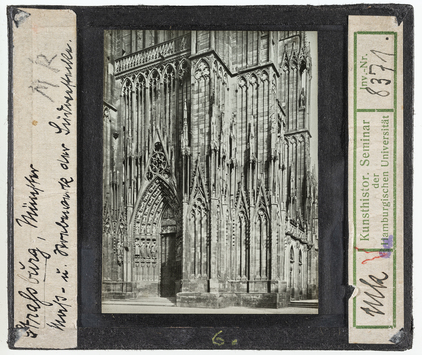 Straßburg. Münster
Maß- u. Strebewerk der Südwestecke
Inv.-Nr.
8371.
Kunsthistor. Seminar
der
Hamburgischen Universität
6.